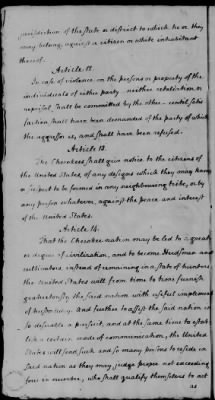 jurisdiction of the state or district to which he or they
may belong, against a citizen or white inhabitant
thereof.
Article 12.
In case of violence on the persons or property of the
individuals of either party neither retaliation or
reprisal shall be committed by the other until satis
faction shall have been demanded of the party of which
the aggressor is, and shall have been refused.
Article 13.
The Cherokees shall give notice to the citizens of
the United States, of any designs which they may know
or suspect to be formed in any neighbouring tribe, or by
any person whatever, against the peace and interest
of the United States.
Article 14.
That the Cherokee nation may be led to a great
er degree of civilization, and to become Herdsmen and
cultivators instead of remaining in a state of hunters
the United States will from time to time furnish
gratuitously the said nation with useful implements
of husbandry. And further to assist the said nation in
so desirable a pursuit, and at the same time to establ
ish a certain mode of communication, the United
States will send such and so many persons to reside in
said nation as they may judge proper not exceeding
four in number, who shall qualify themselves to act
as